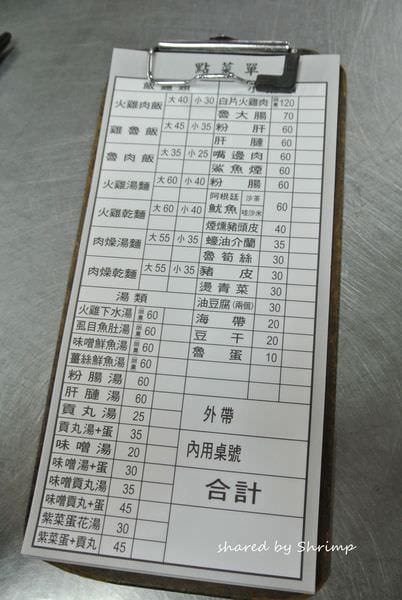 點菜單
飯麵類 小
火雞肉飯 大40 小30
雞魯飯 大45 小35
魯肉飯 大35 小25
火雞湯麵 大60 小40
火雞乾麵 大60 小40
肉燥湯麵 大55 小35
肉燥乾麵 大55 小35
湯類
火雞下水湯 60
虱目魚肚湯 60
味噌鮮魚湯 60
薑絲鮮魚湯 60
粉腸湯 60
肝腱湯 60
貢丸湯 25
貢丸湯+蛋 35
味噌湯 20
味噌湯+蛋 30
味噌貢丸湯 35
味噌貢丸+蛋 45
紫菜蛋花湯 30
紫菜蛋+貢丸 45
白片火雞肉 120
魯大腸 70
粉肝 60
肝腱 60
嘴邊肉 60
鯊魚煙 60
粉腸 60
阿根廷魷魚 沙茶 哇沙米 60
煙燻豬頭皮 40
蠔油介蘭 35
魯筍絲 30
豬皮 30
燙青菜 30
油豆腐(兩個) 30
海帶 20
豆干 20
魯蛋 10
外帶
內用桌號
合計
shared by Shrimp